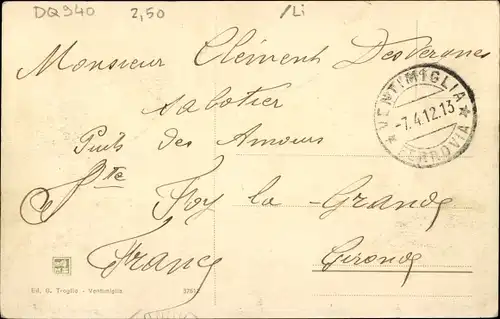 DQ940 2,50 /Li
Monsieur Clément Desvergnes
sabotier
Puits des Amours
Ste Foy la Grande
France Gironde
VENTIMIGLIA
-7.4.12.13
FERROVIA
Ed. G. Troglia - Ventimiglia